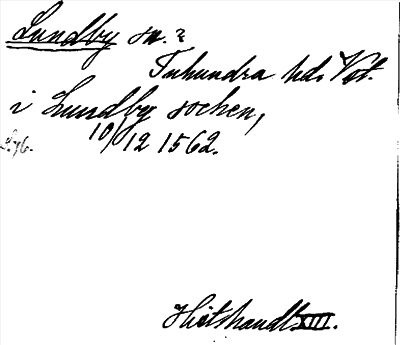 Lundby sn.?
Tuhundra hd. Vst.
i Lundby socken,
10/12 1562.
Hist. handl. XIII.